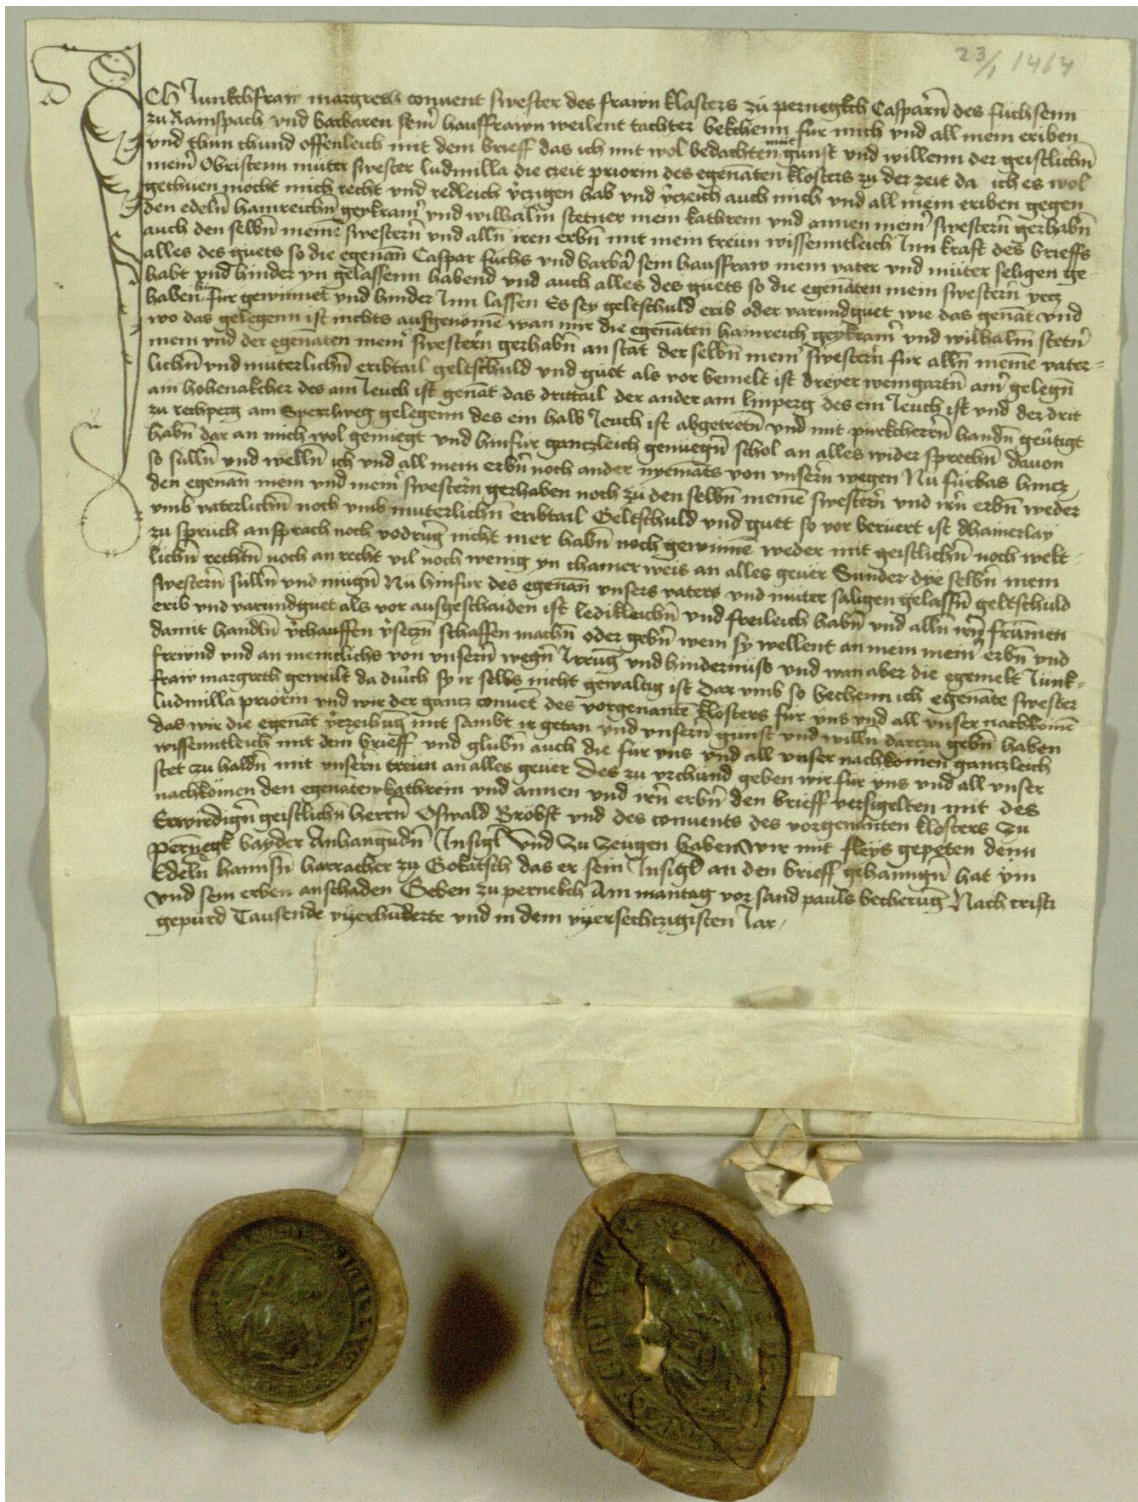 23/1 1464
Ich Junkchfraw margreth convent swester des frawn klosters zu pernegkch Casparn̄ des fuchsenn
zu Ramspach vnd barbaren sein̄ hausfrawn weilent tachter bekchenn fur mich vnd all mein eriben
vnd thun chund offenleich mit dem brieff das ich mit wol bedachten mut gunst vnd willenn der geistlichn̄
mein̄ Obristenn muter swester ludmilla die czeit priorin des egenāten klosters zu der zeit da ich es wol
gethuen mocht mich recht vnd redleich v̄czigen hab vnd v̄czeich auch mich vnd all mein eriben gegen
den edeln̄ hainreichn̄ geykram̄ vnd wilhalm̄ stetner mein kathrein vnd annen mein̄ swestern̄ gerhabn̄
auch den selbn̄ meinē swestern̄ vnd alln̄ iren erbn̄ mit mein trewn wissenntleich Inn kraft des brieffs
alles des guets so die egenan̄ Caspar fuchs vnd barbā sein hausfraw mein vater vnd muter seligen ge-
habt vnd hinder yn gelassenn habend vnd auch alles des guets so die egenāten mein swestern̄ yecz
haben fur gewinnet vnd hinder Inn lassen Es sey geltschuld erib oder varundguet wie das genāt vnd
wo das gelegenn ist nichts ausgenomē wan mir die egenāten hainreich geykram̄ vnd wilhalm̄ stetn̄
mein vnd der egenāten mein̄ swestern̄ gerhabn̄ an stat der selbn̄ mein̄ swestern̄ fur alln̄ meinē vater-
lichn̄ vnd muterlichn̄ eribtail geltschuld vnd guet als vor bemelt ist dreyer weingartn̄ ain̄ gelegn̄
am hohenakcher des ain Jeuch ist genāt das drittail der ander am linperg des ein Jeuch ist vnd der drit
zu rechperg am Sperlweg gelegenn des ein halb Jeuch ist abgetretn̄ vnd mit purkcherrn̄ handn̄ geūtigt
habn̄ dar an mich wol genuegt vnd hinfur ganczleich genuegn̄ schol an alles wider sprechn̄ davon
so sulln̄ vnd welln̄ ich vnd all mein erbn̄ noch ander nyemāts von vnsern̄ wegen Nu furbas hincz
den egenan̄ mein vnd mein̄ swestern̄ gerhaben noch zu den selbn̄ meinē swestern̄ vnd irn̄ erbn̄ weder
vmb vaterlichn̄ noch vmb muterlichn̄ eribtail Geltschuld vnd guet so vor beruert ist dhainerlay
zu spruch ansprach noch vodrūg nicht mer habn̄ noch gewinnē weder mit geistlichn̄ noch welt-
lichn̄ rechtn̄ noch an recht vil noch wenig yn chainer weis an alles gever Sunder dye selbn̄ mein
swestern̄ sulln̄ vnd mugn̄ Nu hinfur des egenan̄ vnsers vaters vnd muter saligen gelassn̄ geltschuld
erib vnd varundguet als vor ausgeschaiden ist ledikleichn̄ vnd freileich habn̄ vnd alln̄ irn̄ frumen
damit handln̄ v̄chauffen v̄seczn̄ schaffen machn̄ oder gebn̄ wem sy wellent an mein mein̄ erbn̄ vnd
frewnd vnd an meniclichs von vnsern̄ wegn̄ Irrūg vnd hindernuss vnd wan aber die egemelt Junk-
fraw margreth geweilt da durch sy ir selbs nicht gewaltig ist Dar vmb so bechenn ich egenāte swester
ludmilla priorin vnd wir der gancz convēt des vorgenantē klosters fur vns vnd all vnser nachkomē
das wir die egenāt v̄czeihūg mit sambt ir getan vnd vnsern̄ gunst vnd willn̄ darczu gebn̄ haben
wissenntleich mit dem brieff vnd glubn̄ auch die fur vns vnd all vnser nachkomen ganczleich
stet zu haldn̄ mit vnsern̄ trewn an alles gever Des zu vrchund geben wir fur vns vnd all vnser
nachkömen den egenāten kathrein vnd annen vnd irn̄ erbn̄ den brieff versigelten mit des
Erwirdign̄ geistlichn̄ herrn̄ Oswald Brobst vnd des convents des vorgenanten klosters Zu
pernegk bayder Anhangūdn̄ Insigl Vnd Zu Zeugen haben wir mit fleys gepeten denn
Edeln̄ hannsn̄ harracher zu Gokatsch das er sein Insigl an den brieff gehanngn̄ hat ym
vnd sein erben an schaden Geben zu pernekch Am mantag vor sand pauls becherūg Nach cristi
gepurd Tausende vyerhūderte vnd in dem vyersechczigisten Jar